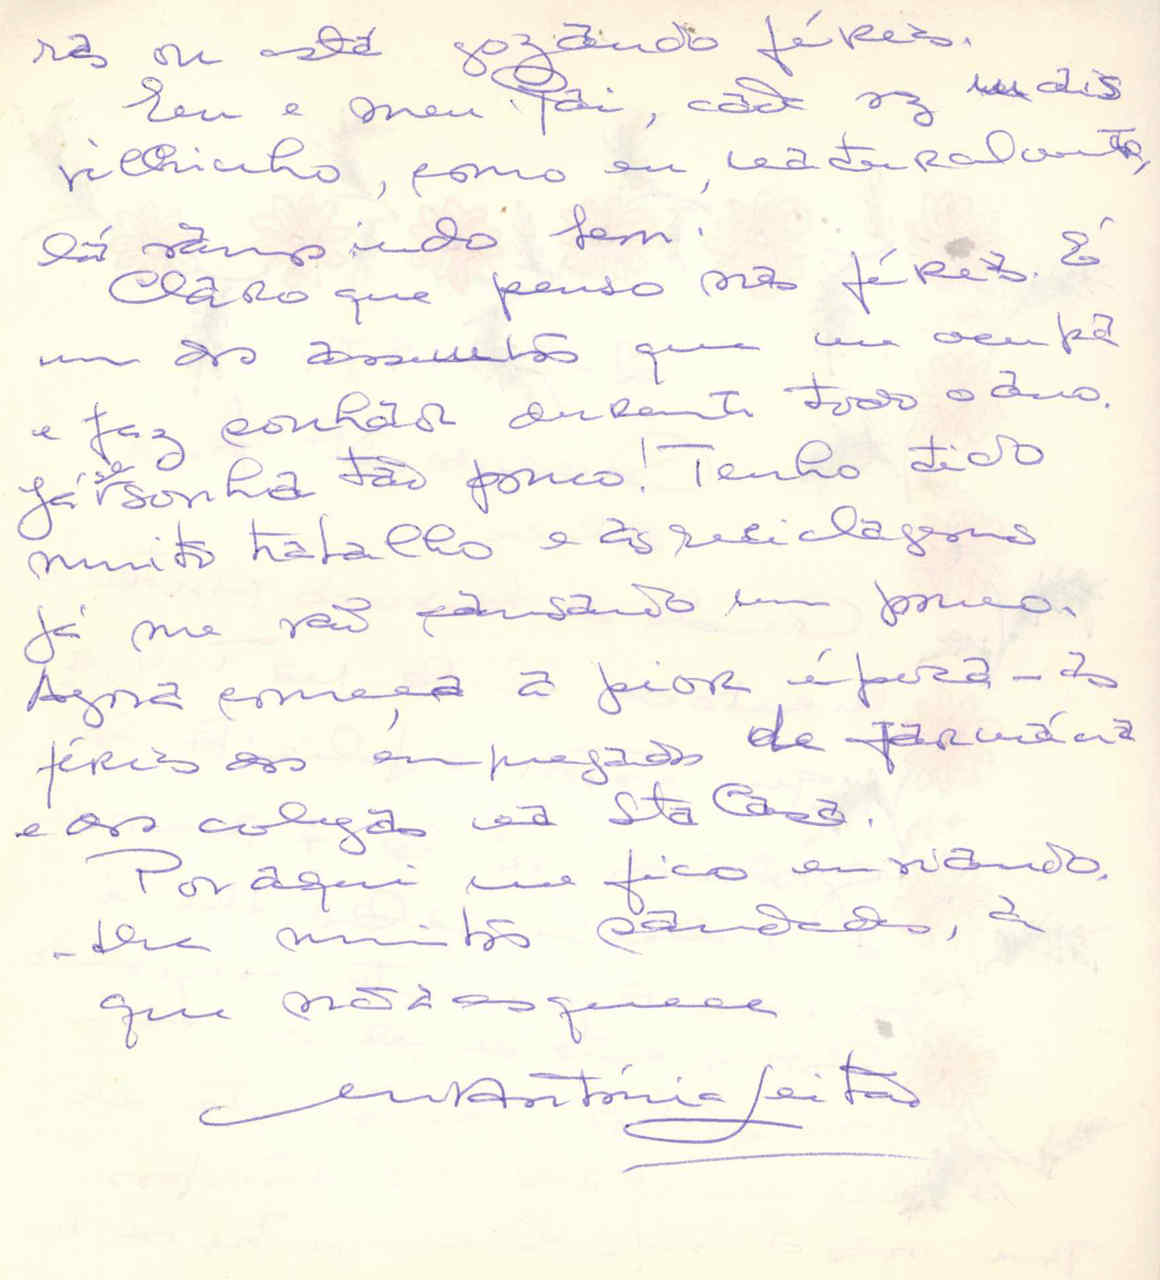 rás ou está gozando férias.
Eu e meu Pai, cada vez mais
velhinho, como eu, naturalmente,
lá vamos indo bem.
Claro que penso nas férias. É
um dos assuntos que me ocupa
e faz sonhar durante todo o ano.
Já se sonha tão pouco! Tenho tido
muito trabalho e as reciclagens
já me vão cansando um pouco.
Agora começa a pior época - as
férias dos empregados de farmácia
e dos colegas na Sta Casa.
Por aqui me fico enviando
-lhe muitas saudades, a
que não a esquece
M Antónia Leitão